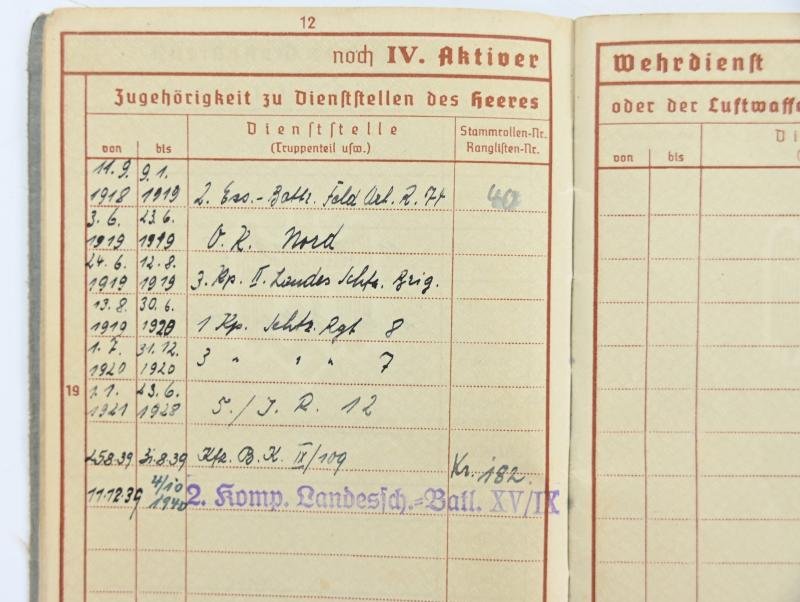 12
noch IV. Aktiver
Wehrdienst
Zugehörigkeit zu Dienststellen des Heeres
oder der Luftwaffe
von bis
Dienststelle
(Truppenteil usw.)
Stammrollen-Nr.
Ranglisten-Nr.
von bis
11.9. 9.1.
1918 1919 2. Ers.-Battr. Feld Art. R. 74 40
3.6. 23.6.
1919 1919 O.K. Nord
24.6. 12.8.
1919 1919 3. Kp. II. Landes Schtz. Brig.
13.8. 30.6.
1919 1920 1 Kp. Schtz. Rgt 8
1.7. 31.12.
1920 1920 3 " " " 7
19
1.1. 23.6.
1921 1928 5./J.R. 12
25.8.39 31.8.39 Kfz. B.K. IX/109
Kr. 182.
11.12.39 4/10 1940 2. Komp. Landessch.=Batl. XV/IX